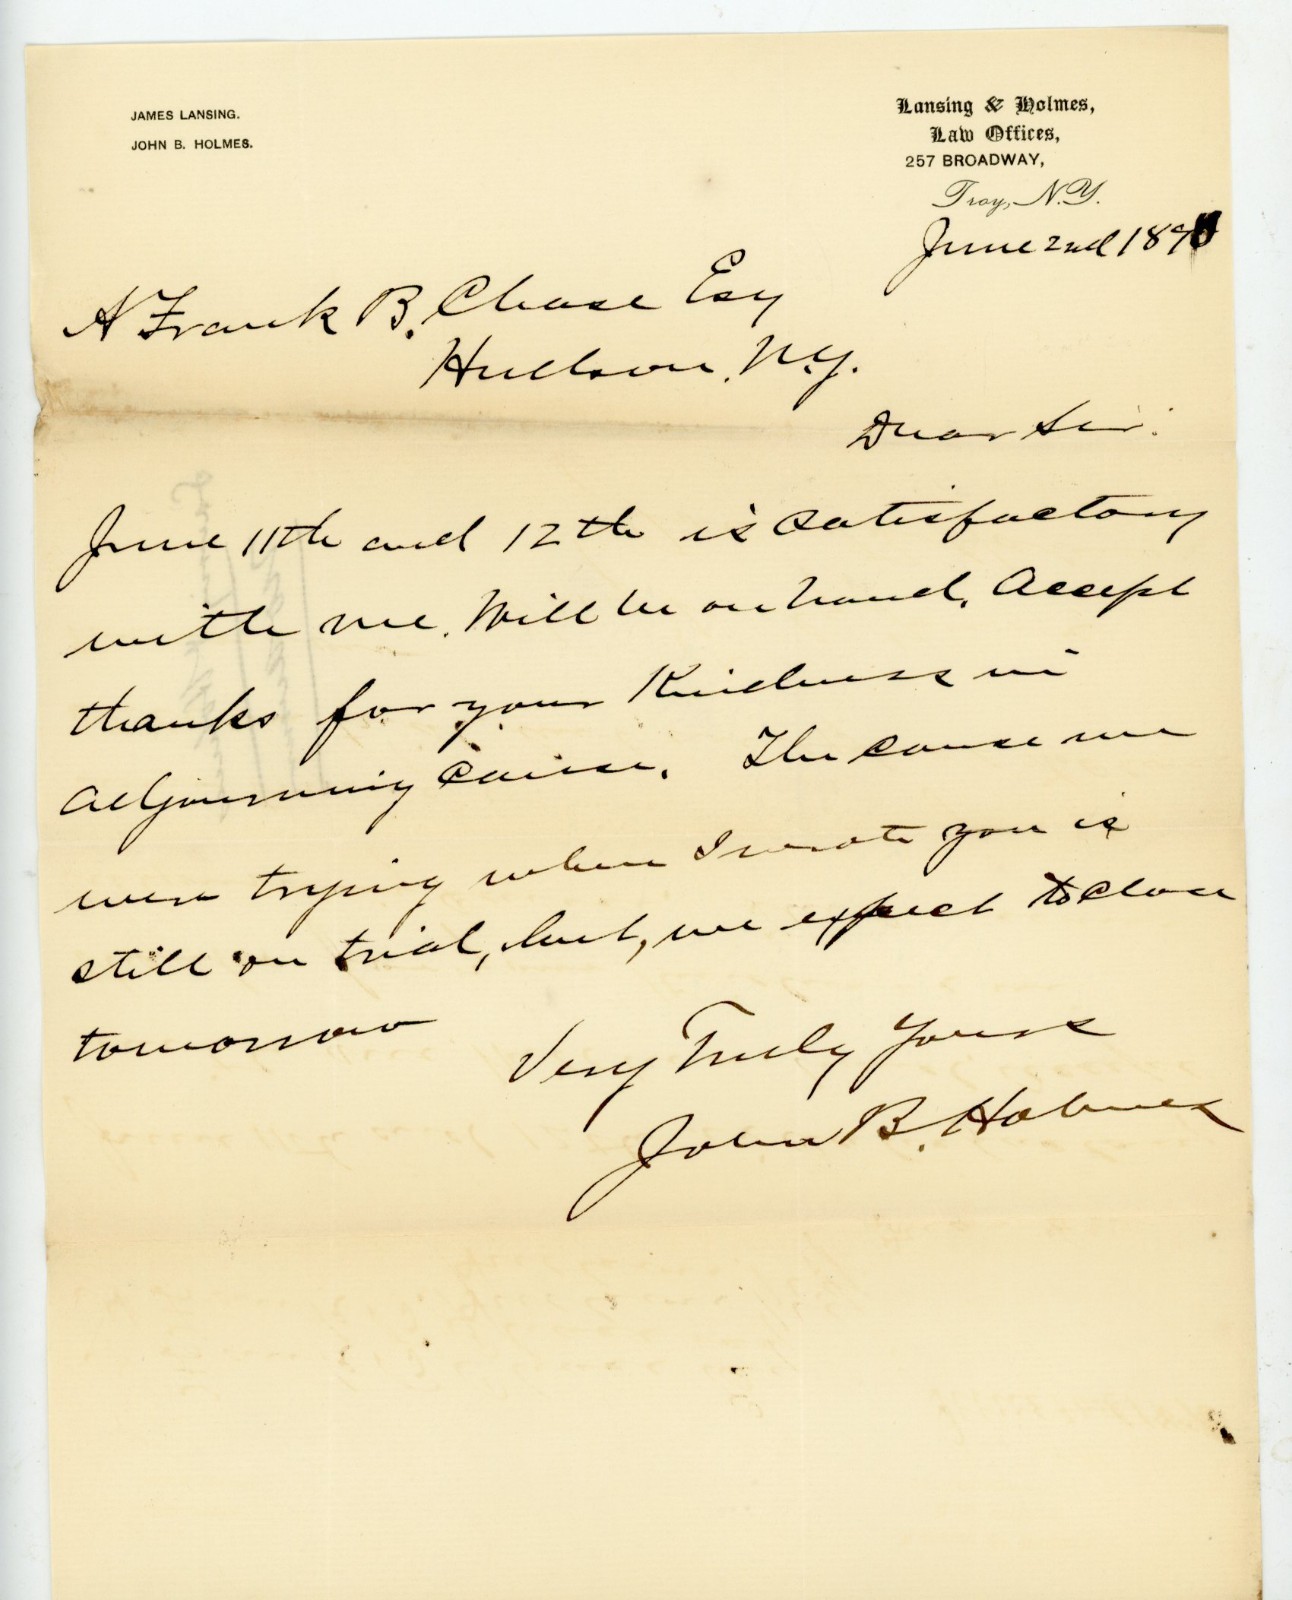 JAMES LANSING.
JOHN B. HOLMES.
Lansing & Holmes,
Law Offices,
257 BROADWAY,
Troy, N.Y.
June 2nd 189
A Frank B. Chase Esq
Hudson, N.Y.
Dear Sir:
June 11th and 12th is satisfactory
with me. Will be on hand. Accept
thanks for your kindness in
adjourning cause. The cause we
were trying when I wrote you is
still on trial, but, we expect to close
tomorrow
Very Truly Yours
John B. Holmes